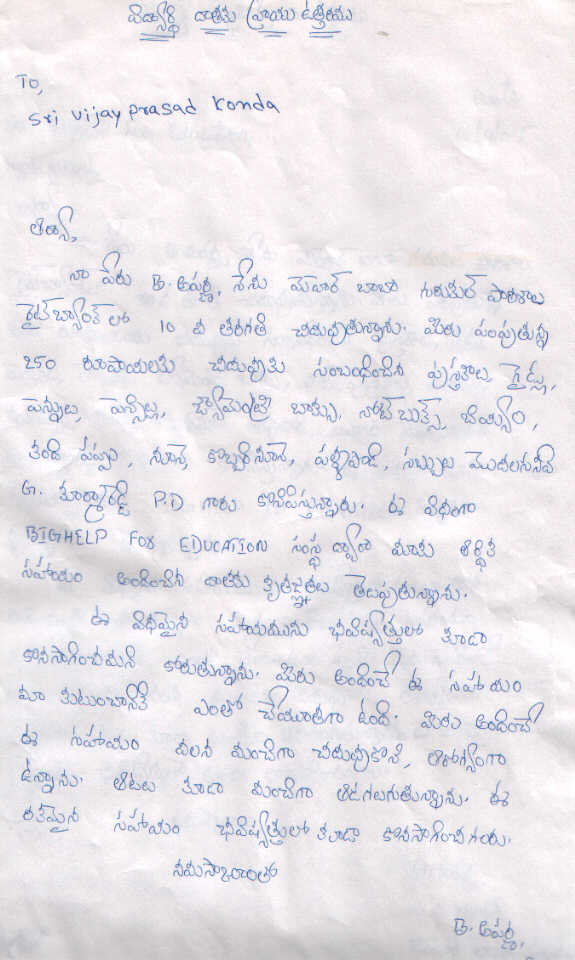 విద్యార్థి దాతకు వ్రాయు ఉత్తరము
To,
Sri Vijay prasad Konda
ఆర్యా,
నా పేరు B. అపర్ణ, నేను మెహర్ బాబా గురుకుల్ పాఠశాల
లో 10 వ తరగతి చదువుతున్నాను. మీరు పంపుతున్న
250 రూపాయలకు చదువుకు సంబంధించిన పుస్తకాలు, గైడ్లు,
పెన్నులు, పెన్సిల్లు, బాక్సు, నోట్ బుక్స్, బియ్యం,
కంది పప్పు, నూనె, కొబ్బరినూనె, పళ్ళపొడి, సబ్బులు మొదలగునవి
G. P.D గారు కొనిపిస్తున్నారు. ఈ విధంగా
BIGHELP FOR EDUCATION సంస్థ ద్వారా మాకు ఆర్థిక
సహాయం అందించిన దాతకు కృతజ్ఞతలు తెలుపుతున్నాను.
ఈ విధమైన సహాయమును భవిష్యత్తులో కూడా
కొనసాగించమని కోరుతున్నాను. మీరు అందించే ఈ సహాయం
మా కుటుంబానికి ఎంతో చేయూతగా ఉంది. మీరు అందించే
ఈ సహాయం వలన మంచిగా చదువుకొని, ఆరోగ్యంగా
ఉన్నాను. ఆటలు కూడా మంచిగా ఆడగలుగుతున్నాను. ఈ
రకమైన సహాయం భవిష్యత్తులో కూడా కొనసాగించగలరు.
నమస్కారాలతో
B. అపర్ణ,